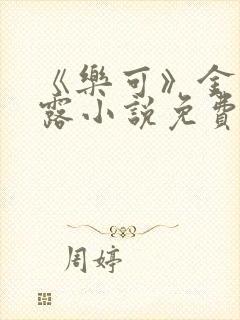 《樂可》金
露小說免費
周婷